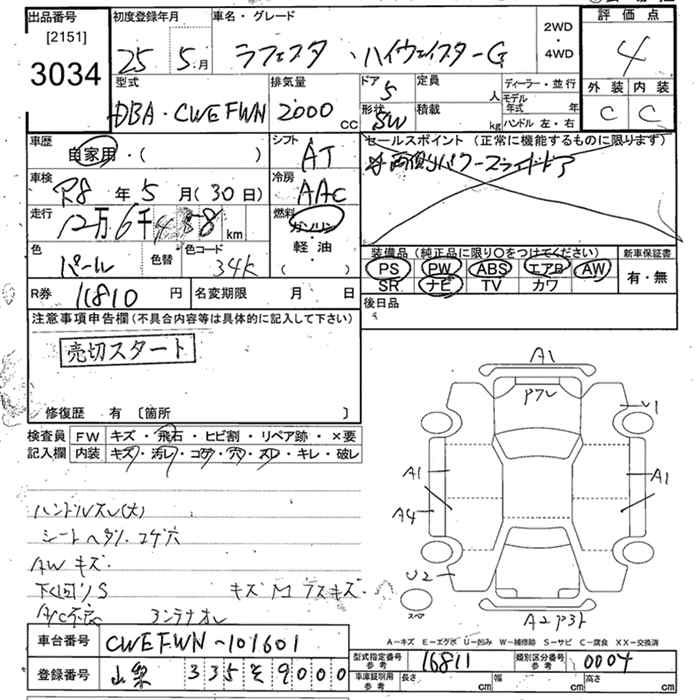 出品番号 [2151] 3034
初度登録年月 25年 5月
車名・グレード ラフェスタ ・ハイウェイスターG
2WD ・ 4WD
評価点 4
外装 内装
C C
型式 DBA・CWEFWN
排気量 2000 cc
ドア 5
形状 SW
定員 人
積載 kg
ディーラー・並行
モデル年式 年
ハンドル 左・右
車歴 自家用・( )
シフト AT
セールスポイント (正常に機能するものに限ります)
両側パワースライドドア
車検 R8 年 5 月 (30日)
冷房 AAC
走行 12万6千438 km
燃料 ガソリン 軽・油 ( )
色 パール
色替
色コード 34K
装備品 (純正品に限り○をつけてください)
PS PW ABS エアB AW
SR ナビ TV カワ
新車保証書 有・無
R券 11810 円
名変期限 月 日
後日品
注意事項申告欄 (不具合内容等は具体的に記入して下さい)
売切スタート
修復歴 有 〔箇所 〕
検査員記入欄
FW キズ・飛石・ヒビ割・リペア跡・×要
内装 キズ・汚レ・コゲ・穴・スレ・キレ・破レ
ハンドルスレ(大)
シートヘタリ コゲ穴
AWキズ
下回リS
キズ M ラスキズ
A/C不広 コンテナオレ
A1
アフレ
U1
A1
A1
A4
U2
スペア
A2 アヨト
A-キズ E-エクボ U-凹み W-補修跡 S-サビ C-腐食 XX-交換済
車台番号 CWEFWN-101601
登録番号 山梨 335 そ 9000
型式指定番号 参考 16811
類別区分番号 参考 0004
車庫証明用 参考 長さ cm 幅 cm 高さ cm